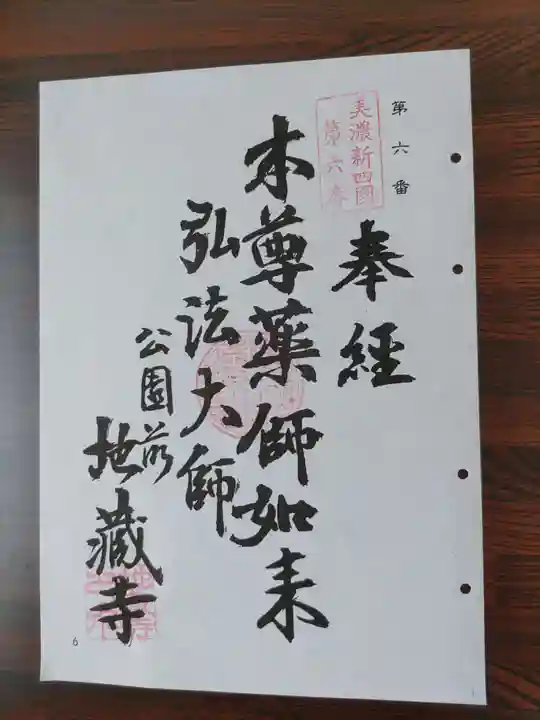 第六番
美濃新四国
第六番
奉経
本尊薬師如来
弘法大師
公園前
地蔵寺
6